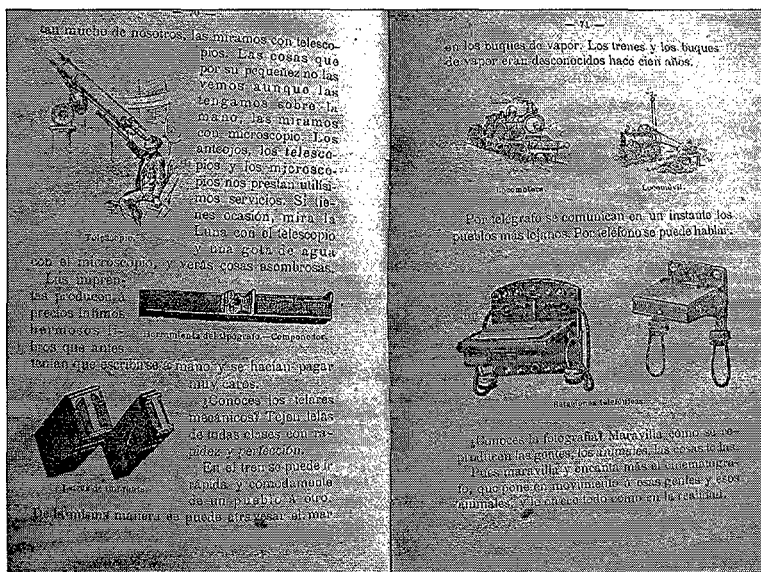 tan mucho de nosotros, las miramos con telesco-
pios. Las cosas que
por su pequeñez no las
vemos aunque las
tengamos sobre la
mano, las miramos
con microscopio. Los
anteojos, los telesco-
pios y los microsco-
pios nos prestan utilísi-
mos servicios. Si tie-
nes ocasión, mira la
Luna con el telescopio
y una gota de agua
Telescopio.
con el microscopio, y verás cosas asombrosas.
Las impren-
tas producen á
precios ínfimos
hermosos li-
bros que antes
Herramienta del tipógrafo.—Componedor.
tenían que escribirse á mano y se hacían pagar
muy caros.
¿Conoces los telares
mecánicos? Tejen telas
de todas clases con ra-
pidez y perfección.
En el tren se puede ir
rápida y cómodamente
de un pueblo á otro.
De la misma manera se puede atravesar el mar
— 71 —
en los buques de vapor. Los trenes y los buques
de vapor eran desconocidos hace cien años.
Locomotora.
Locomóvil.
Por telégrafo se comunican en un instante los
pueblos más lejanos. Por teléfono se puede hablar.
Estaciones telefónicas.
¿Conoces la fotografía? Maravilla cómo se re-
producen las gentes, los animales, las cosas todas.
Pues maravilla y encanta más el cinematógra-
fo, que pone en movimiento á esas gentes y esos
animales, y lo ofrece todo como en la realidad.